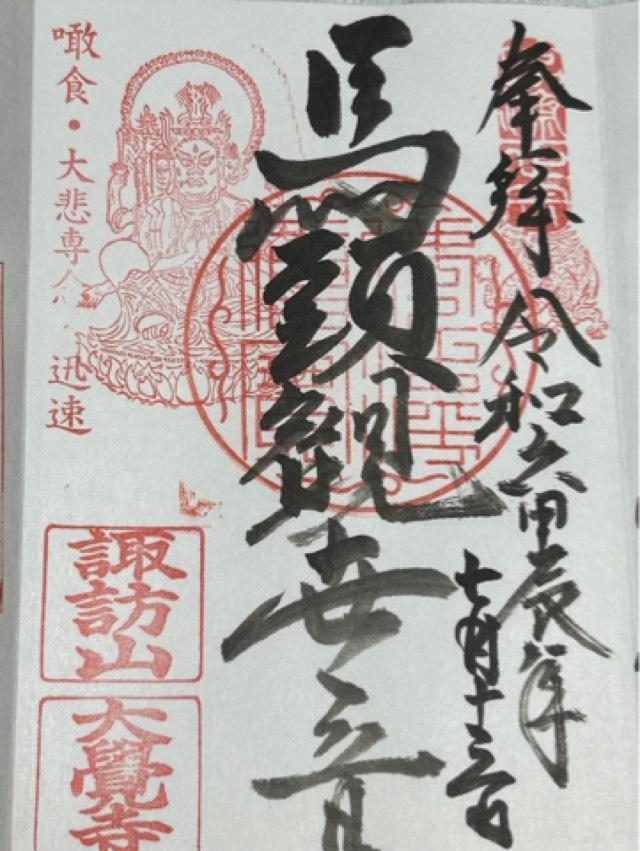 奉拜
令和六甲辰年
七月十三日
馬頭觀世音
噉食・大悲専念・迅速
諏訪山
大覺寺